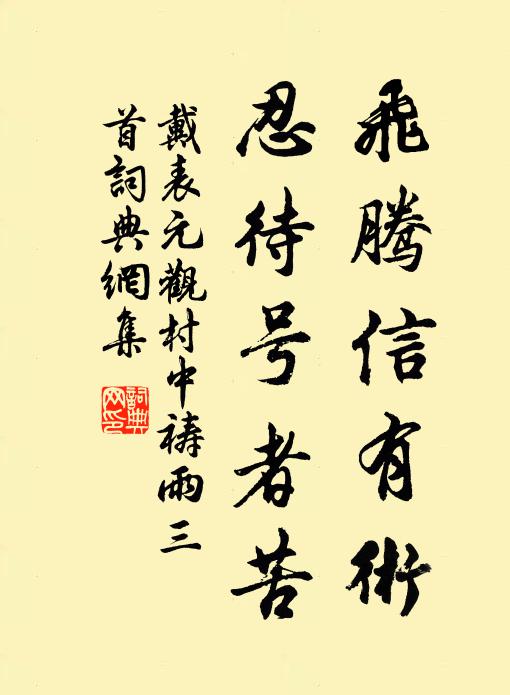 飛騰信有術
忍待号者苦
戴表元觀村中禱雨三
首詞典網集
詞典
网印